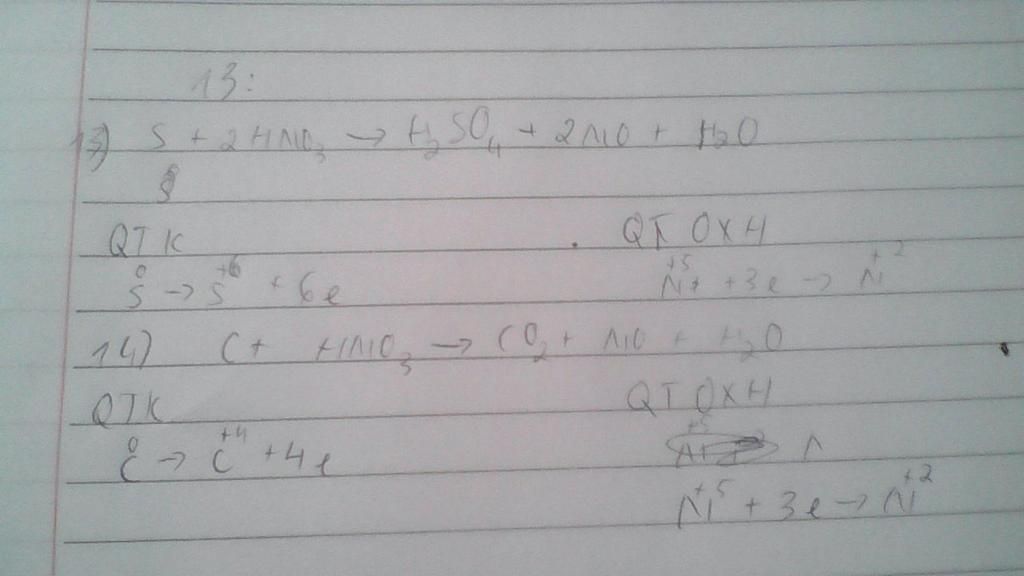 13:
13) S + 2HNO₃ → H₂SO₄ + 2NO + H₂O
S
QTK QT OXH
S⁰ → S⁺⁶ + 6e N⁺⁵ + 3e → N⁺²
14) C + HNO₃ → CO₂ + NO + H₂O
QTK QT OXH
C⁰ → C⁺⁴ + 4e N
N⁺⁵ + 3e → N⁺²